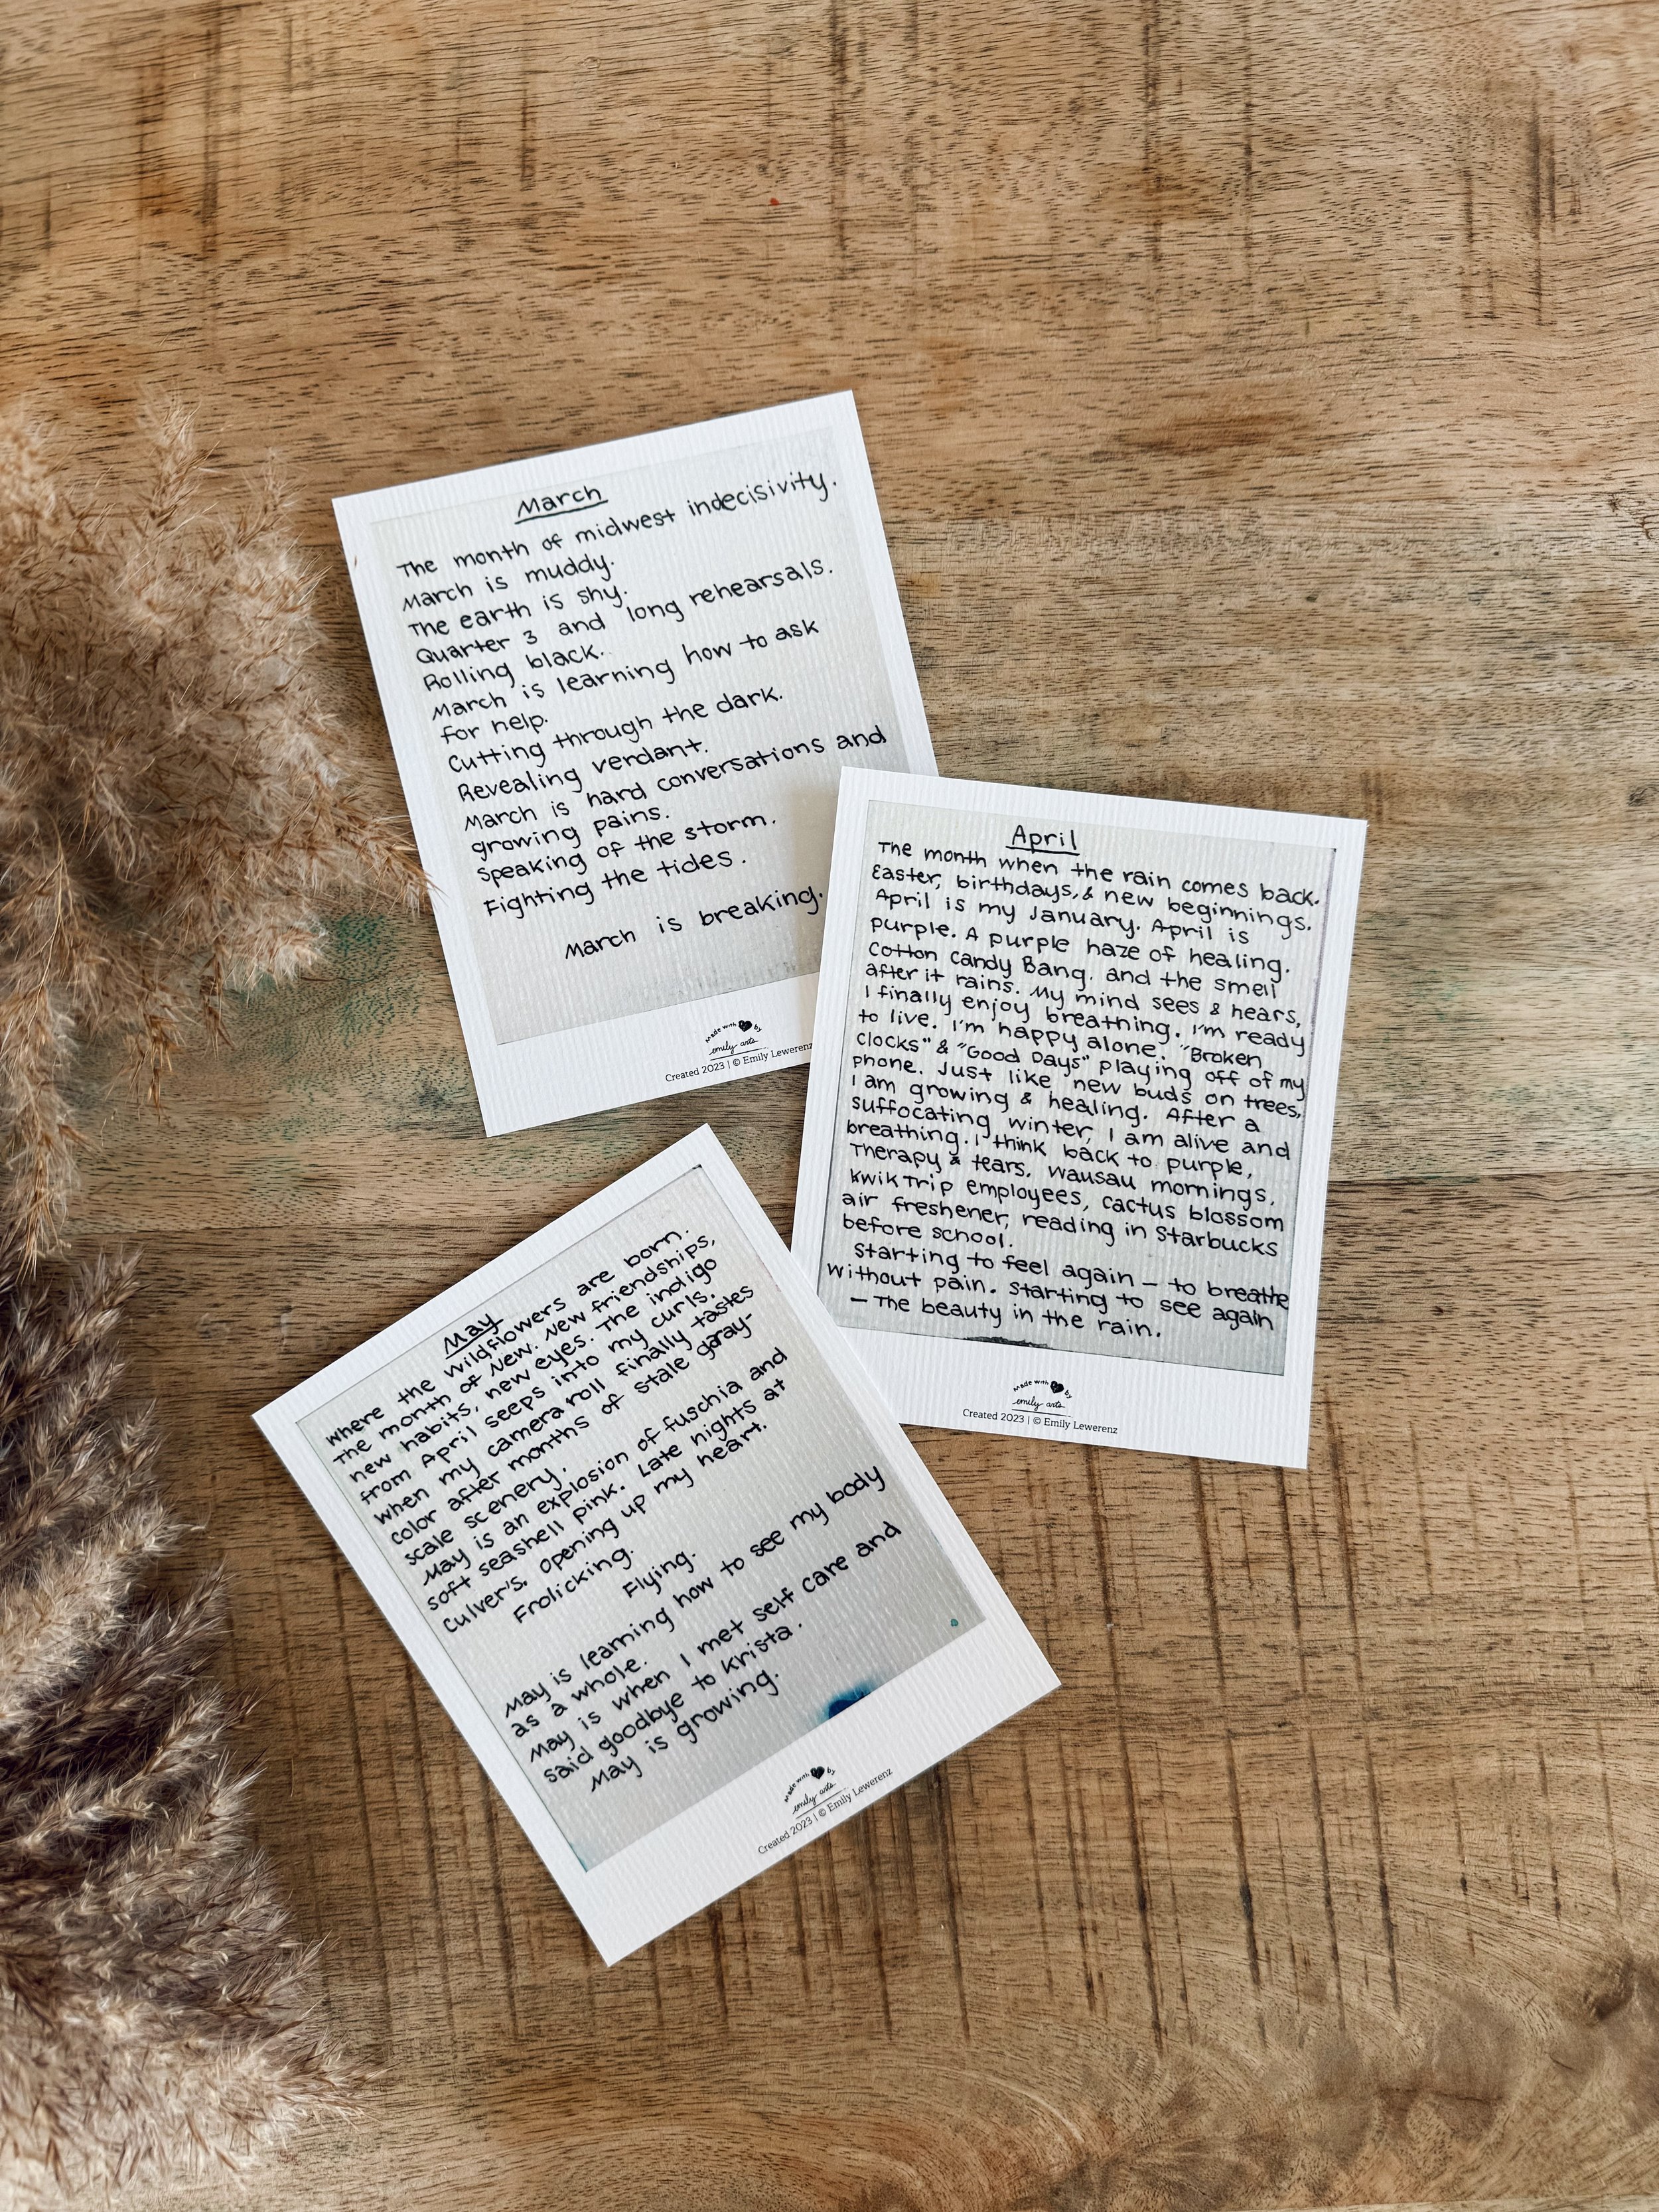 March
The month of midwest indecisivity.
March is muddy.
The earth is shy.
Quarter 3 and long rehearsals.
Rolling black.
March is learning how to ask
for help.
Cutting through the dark.
Revealing verdant.
March is hard conversations and
growing pains.
Speaking of the storm.
Fighting the tides.
March is breaking.
Made with by
emily arts
Created 2023 | © Emily Lewerenz
April
The month when the rain comes back.
Easter, birthdays, & new beginnings.
April is my January. April is
purple. A purple haze of healing.
Cotton Candy Bang. and the smell
after it rains. My mind sees & hears,
I finally enjoy breathing. I'm ready
to live. I'm happy alone. "Broken
Clocks" & "Good Days" playing off of my
phone. Just like new buds on trees,
I am growing & healing. After a
suffocating winter, I am alive and
breathing. I think back to purple,
Therapy & tears. Wausau mornings,
Kwik Trip employees, cactus blossom
air freshener, reading in Starbucks
before school.
Starting to feel again - to breathe
without pain. Starting to see again
- The beauty in the rain.
Made with by
emily arts
Created 2023 | © Emily Lewerenz
May
Where the wildflowers are born.
The month of New. New friendships,
new habits, new eyes. The indigo
from April seeps into my curls.
When my camera roll finally tastes
color after months of stale gray-
scale scenery.
May is an explosion of fuschia and
soft seashell pink. Late nights at
Culver's. Opening up my heart.
Frolicking.
Flying.
May is learning how to see my body
as a whole.
May is when I met self care and
said goodbye to Krista.
May is growing.
Made with by
emily arts
Created 2023 | © Emily Lewerenz